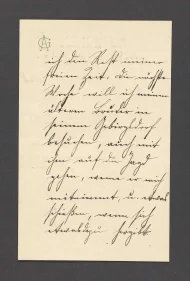 ich den Rest meiner
freien Zeit. Die nächste
Woche will ich meinen
älteren Bruder in
seinem Gebirgsdorf
besuchen, auch mit
ihm auf die Jagd
gehen, wenn er mich
mitnimmt, u. etwas
schießen, wenn sich
etwas dazu